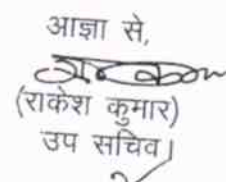 आज्ञा से,
(राकेश कुमार)
उप सचिव।